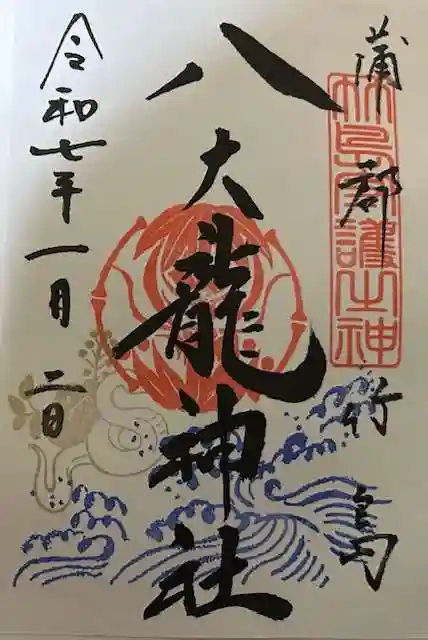 蒲郡竹島
竹島守護之神
八大龍神社
令和七年一月二日